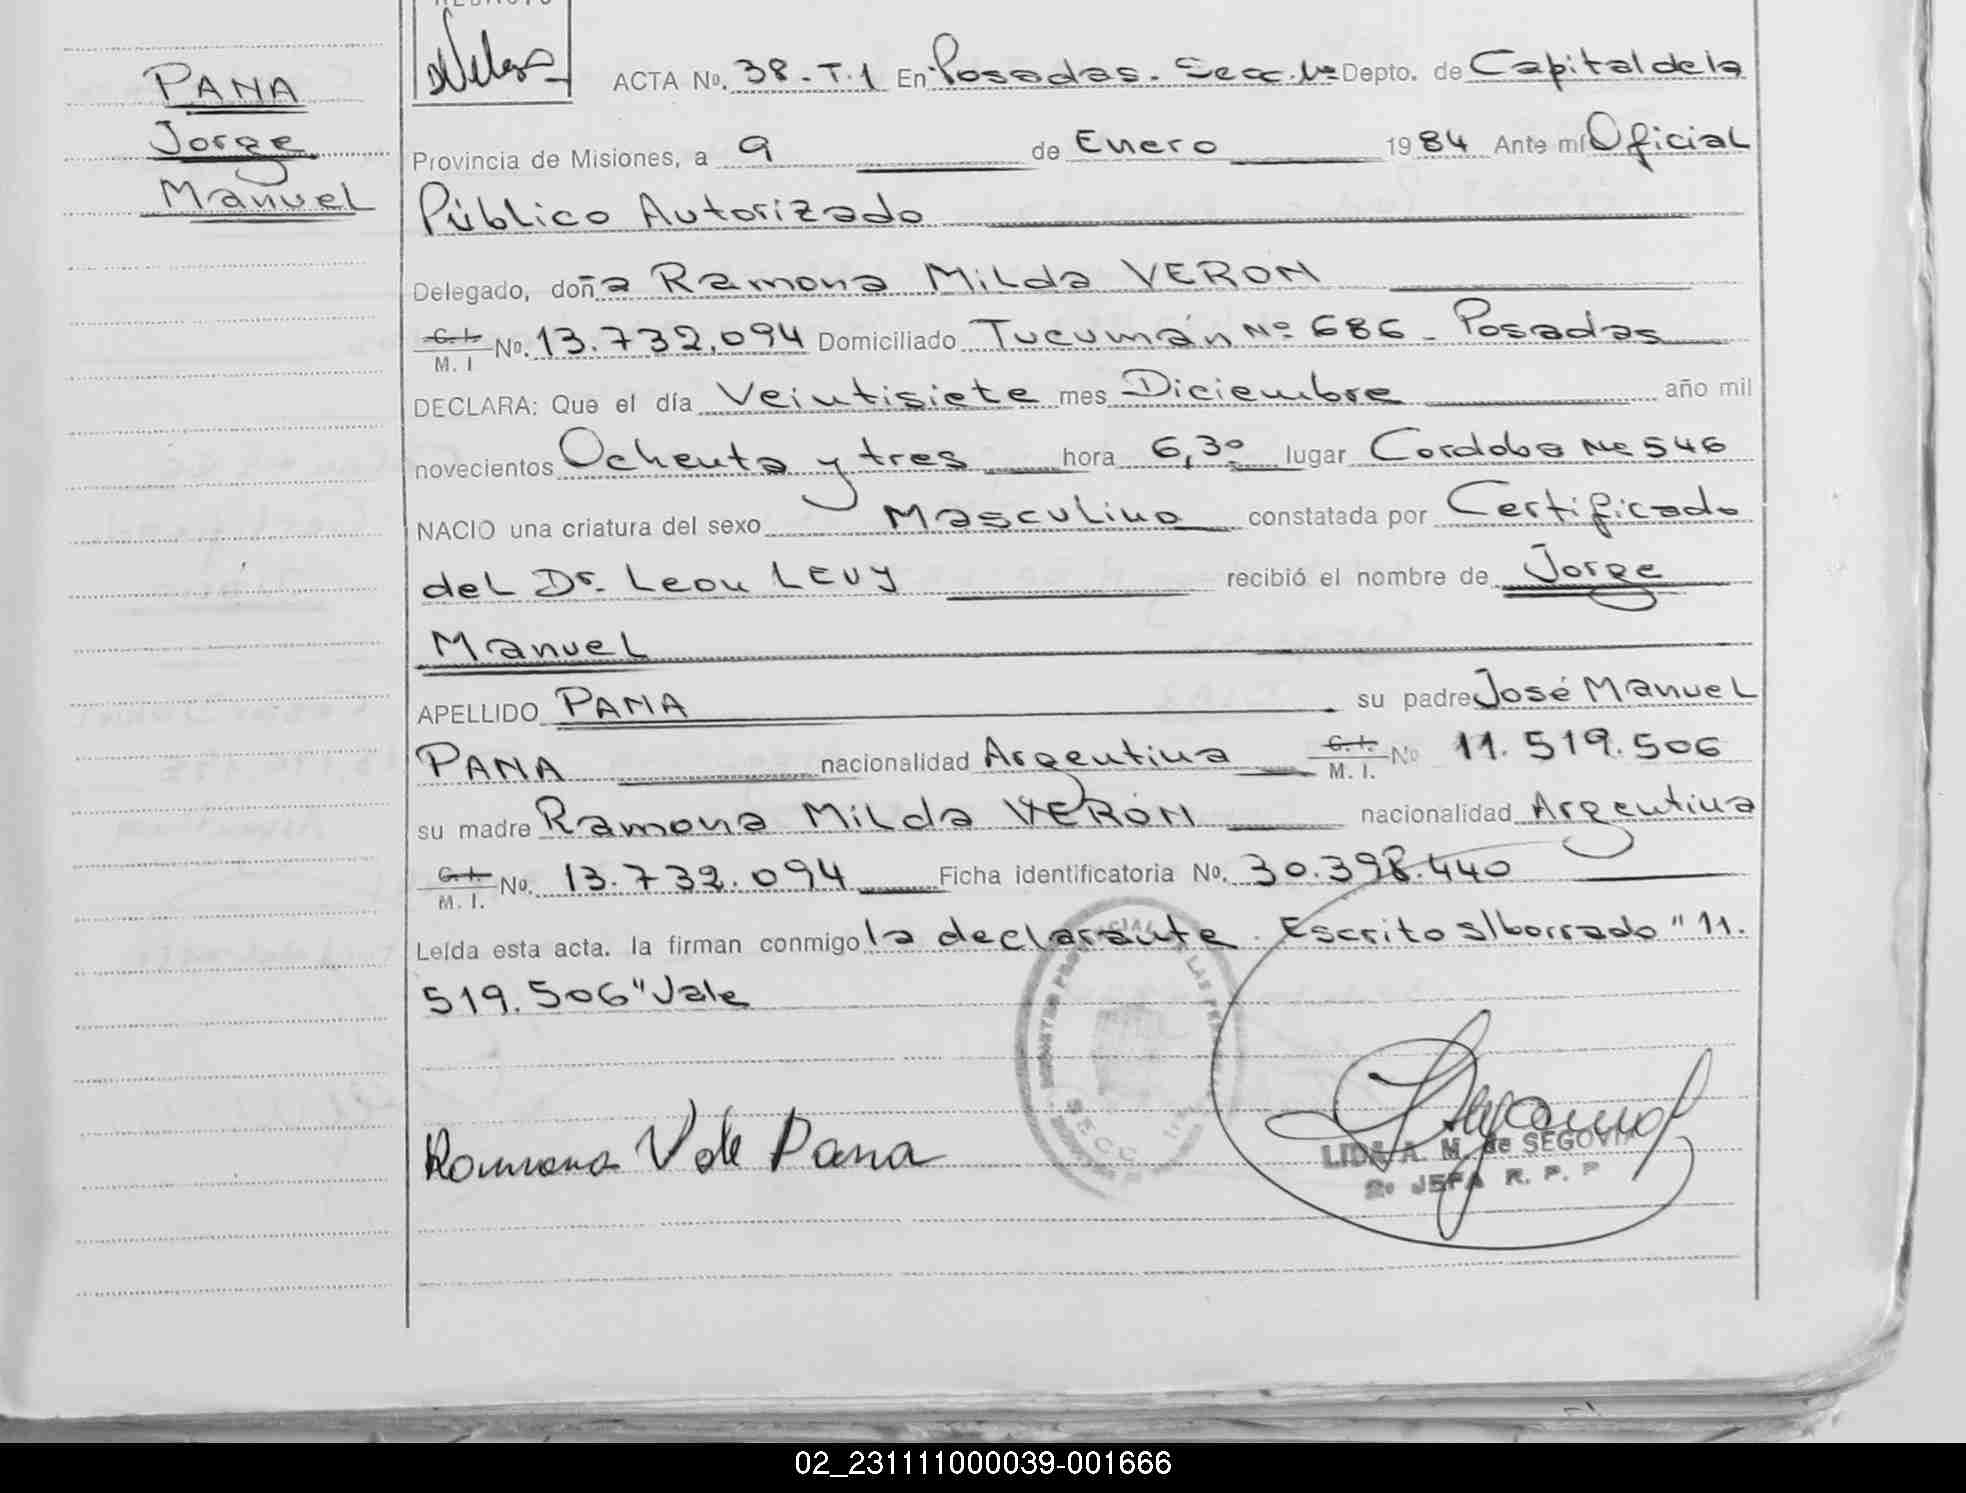 PANA
Jorge
Manuel
ACTA No. 38-T.1 En Posadas. Secc. 1ª Depto. de Capital de la
Provincia de Misiones, a 9 de Enero 1984 Ante mí Oficial
Público Autorizado
Delegado, doña Ramona Milda VERON
C. I. No. 13.732.094 Domiciliado Tucumán Nº 686 - Posadas
M. I
DECLARA: Que el día Veintisiete mes Diciembre año mil
novecientos Ochenta y tres hora 6,30 lugar Cordoba Nº 546
NACIO una criatura del sexo Masculino constatada por Certificado
del Dr. Leon LEVY recibió el nombre de Jorge
Manuel
APELLIDO PANA su padre José Manuel
PANA nacionalidad Argentina C. I. No 11.519.506
M. I.
su madre Ramona Milda VERÓN nacionalidad Argentina
C. I. No. 13.732.094 Ficha identificatoria No. 30.398.440
M. I.
Leída esta acta. la firman conmigo la declarante. Escrito s/borrado "11.
519.506" Vale
Ramona V de Pana
LIDA A. M. de SEGOVIA
2º JEFA R. P. P
02_231111000039-001666